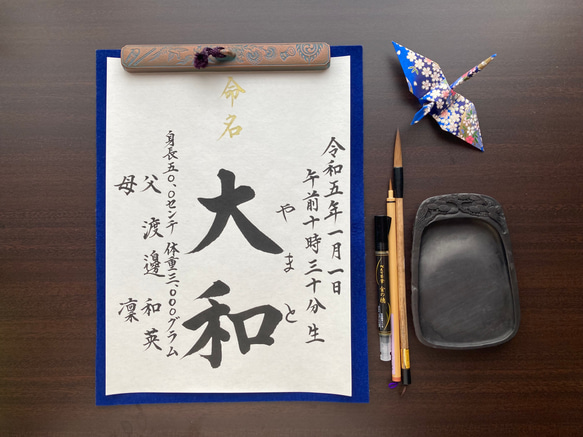 命名
令和五年一月一日
午前十時三十分生
やまと
大和
身長五〇.〇センチ 体重三、〇〇〇グラム
父 渡邊 和英
母 凜